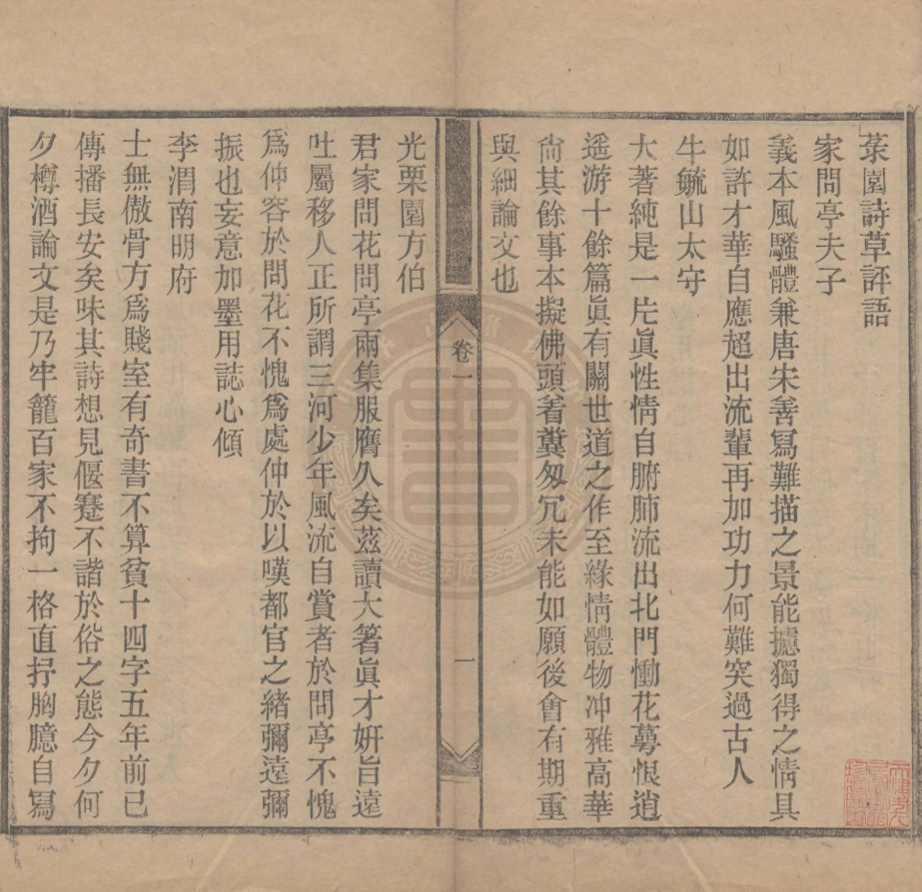 菜園詩草評語
家問亭夫子
義本風騷體兼唐宋善寫難描之景能攄獨得之情具
如許才華自應超出流輩再加功力何難突過古人
牛毓山太守
大著純是一片眞性情自腑肺流出北門慟花萼恨逍
遥游十餘篇眞有關世道之作至緣情體物冲雅高華
尙其餘事本擬佛頭着糞匆冗未能如願後會有期重
與細論文也
卷一
一
光栗園方伯
君家問花問亭兩集服膺久矣茲讀大箸眞才妍旨遠
吐屬移人正所謂三河少年風流自賞者於問亭不愧
爲仲容於問花不愧爲處仲於以嘆都官之緒彌遠彌
振也妄意加墨用誌心傾
李渭南明府
士無傲骨方爲賤室有奇書不算貧十四字五年前已
傳播長安矣味其詩想見偃蹇不諧於俗之態今夕何
夕樽酒論文是乃牢籠百家不拘一格直抒胸臆自寫